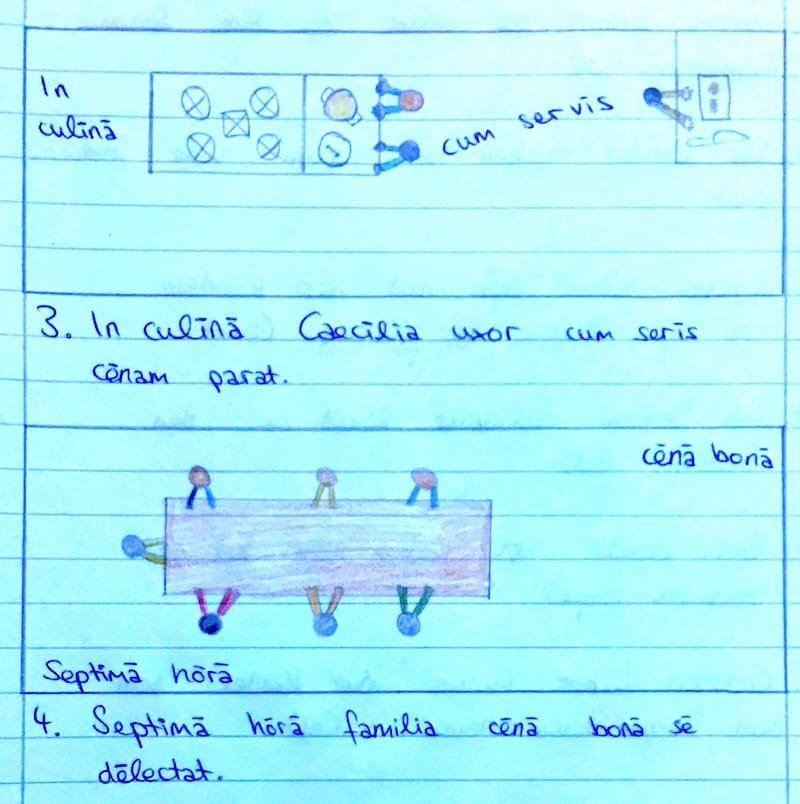 In
culīnā
cum servis
3. In culīnā Caecilia uxor cum seris
cēnam parat.
cēnā bonā
Septimā hōrā
4. Septimā hōrā familia cēnā bonā sē
dēlectat.